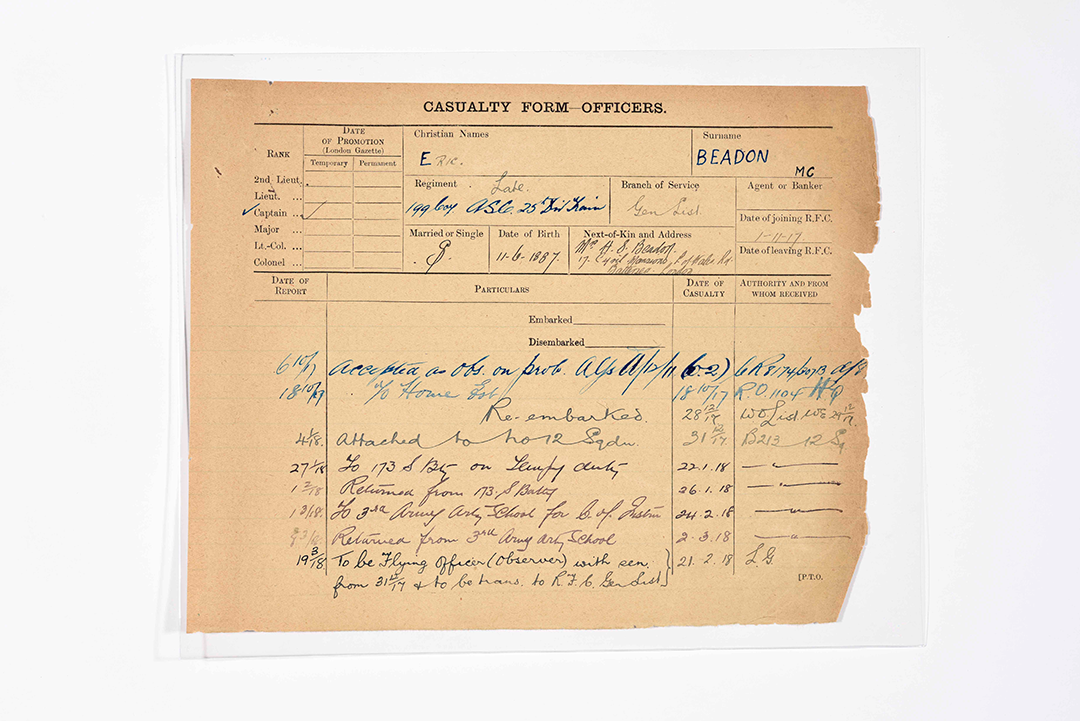 CASUALTY FORM—OFFICERS.
RANK
DATE OF PROMOTION
(London Gazette)
Temporary Permanent
2nd Lieut.
Lieut. ...
Captain ...
Major ...
Lt.-Col. ...
Colonel ...
Christian Names
ERIC.
Surname
BEADON
MC
Regiment
Late
199 Coy. A.S.C. 25th Div Train
Branch of Service
Gen List.
Agent or Banker
Date of joining R.F.C.
1-11-17
Date of leaving R.F.C.
Married or Single
S.
Date of Birth
11-6-1887
Next-of-Kin and Address
H. S. Beadon.
17. Mansions, P. of Wales Rd.
Battersea. London
DATE OF REPORT
PARTICULARS
DATE OF CASUALTY
AUTHORITY AND FROM WHOM RECEIVED
Embarked
Disembarked
6 10/17 Accepted as Obs. on prob.
18 10/17 Home Est. 18 10/17 R.O. 1104 HQ
Re-embarked. 28 12/17 W.O. List
4 1/18. Attached to No 12 Sqdn. 31 12/17. B213 12 Sq
27 1/18 To 173 S Bty on Tempy duty 22.1.18 — " —
1 2/18 Returned from 173. S Batty 26.1.18 — " —
1 3/18. To 3rd Army Arty School for C. of Instn 24.2.18 — " —
Returned from 3rd Army Arty School 2.3.18 — " —
19 3/18 To be Flying Officer (Observer) with sen. } 21.2.18 L.G.
from 31 12/17 & to be trans. to R.F.C. Gen List
[P.T.O.